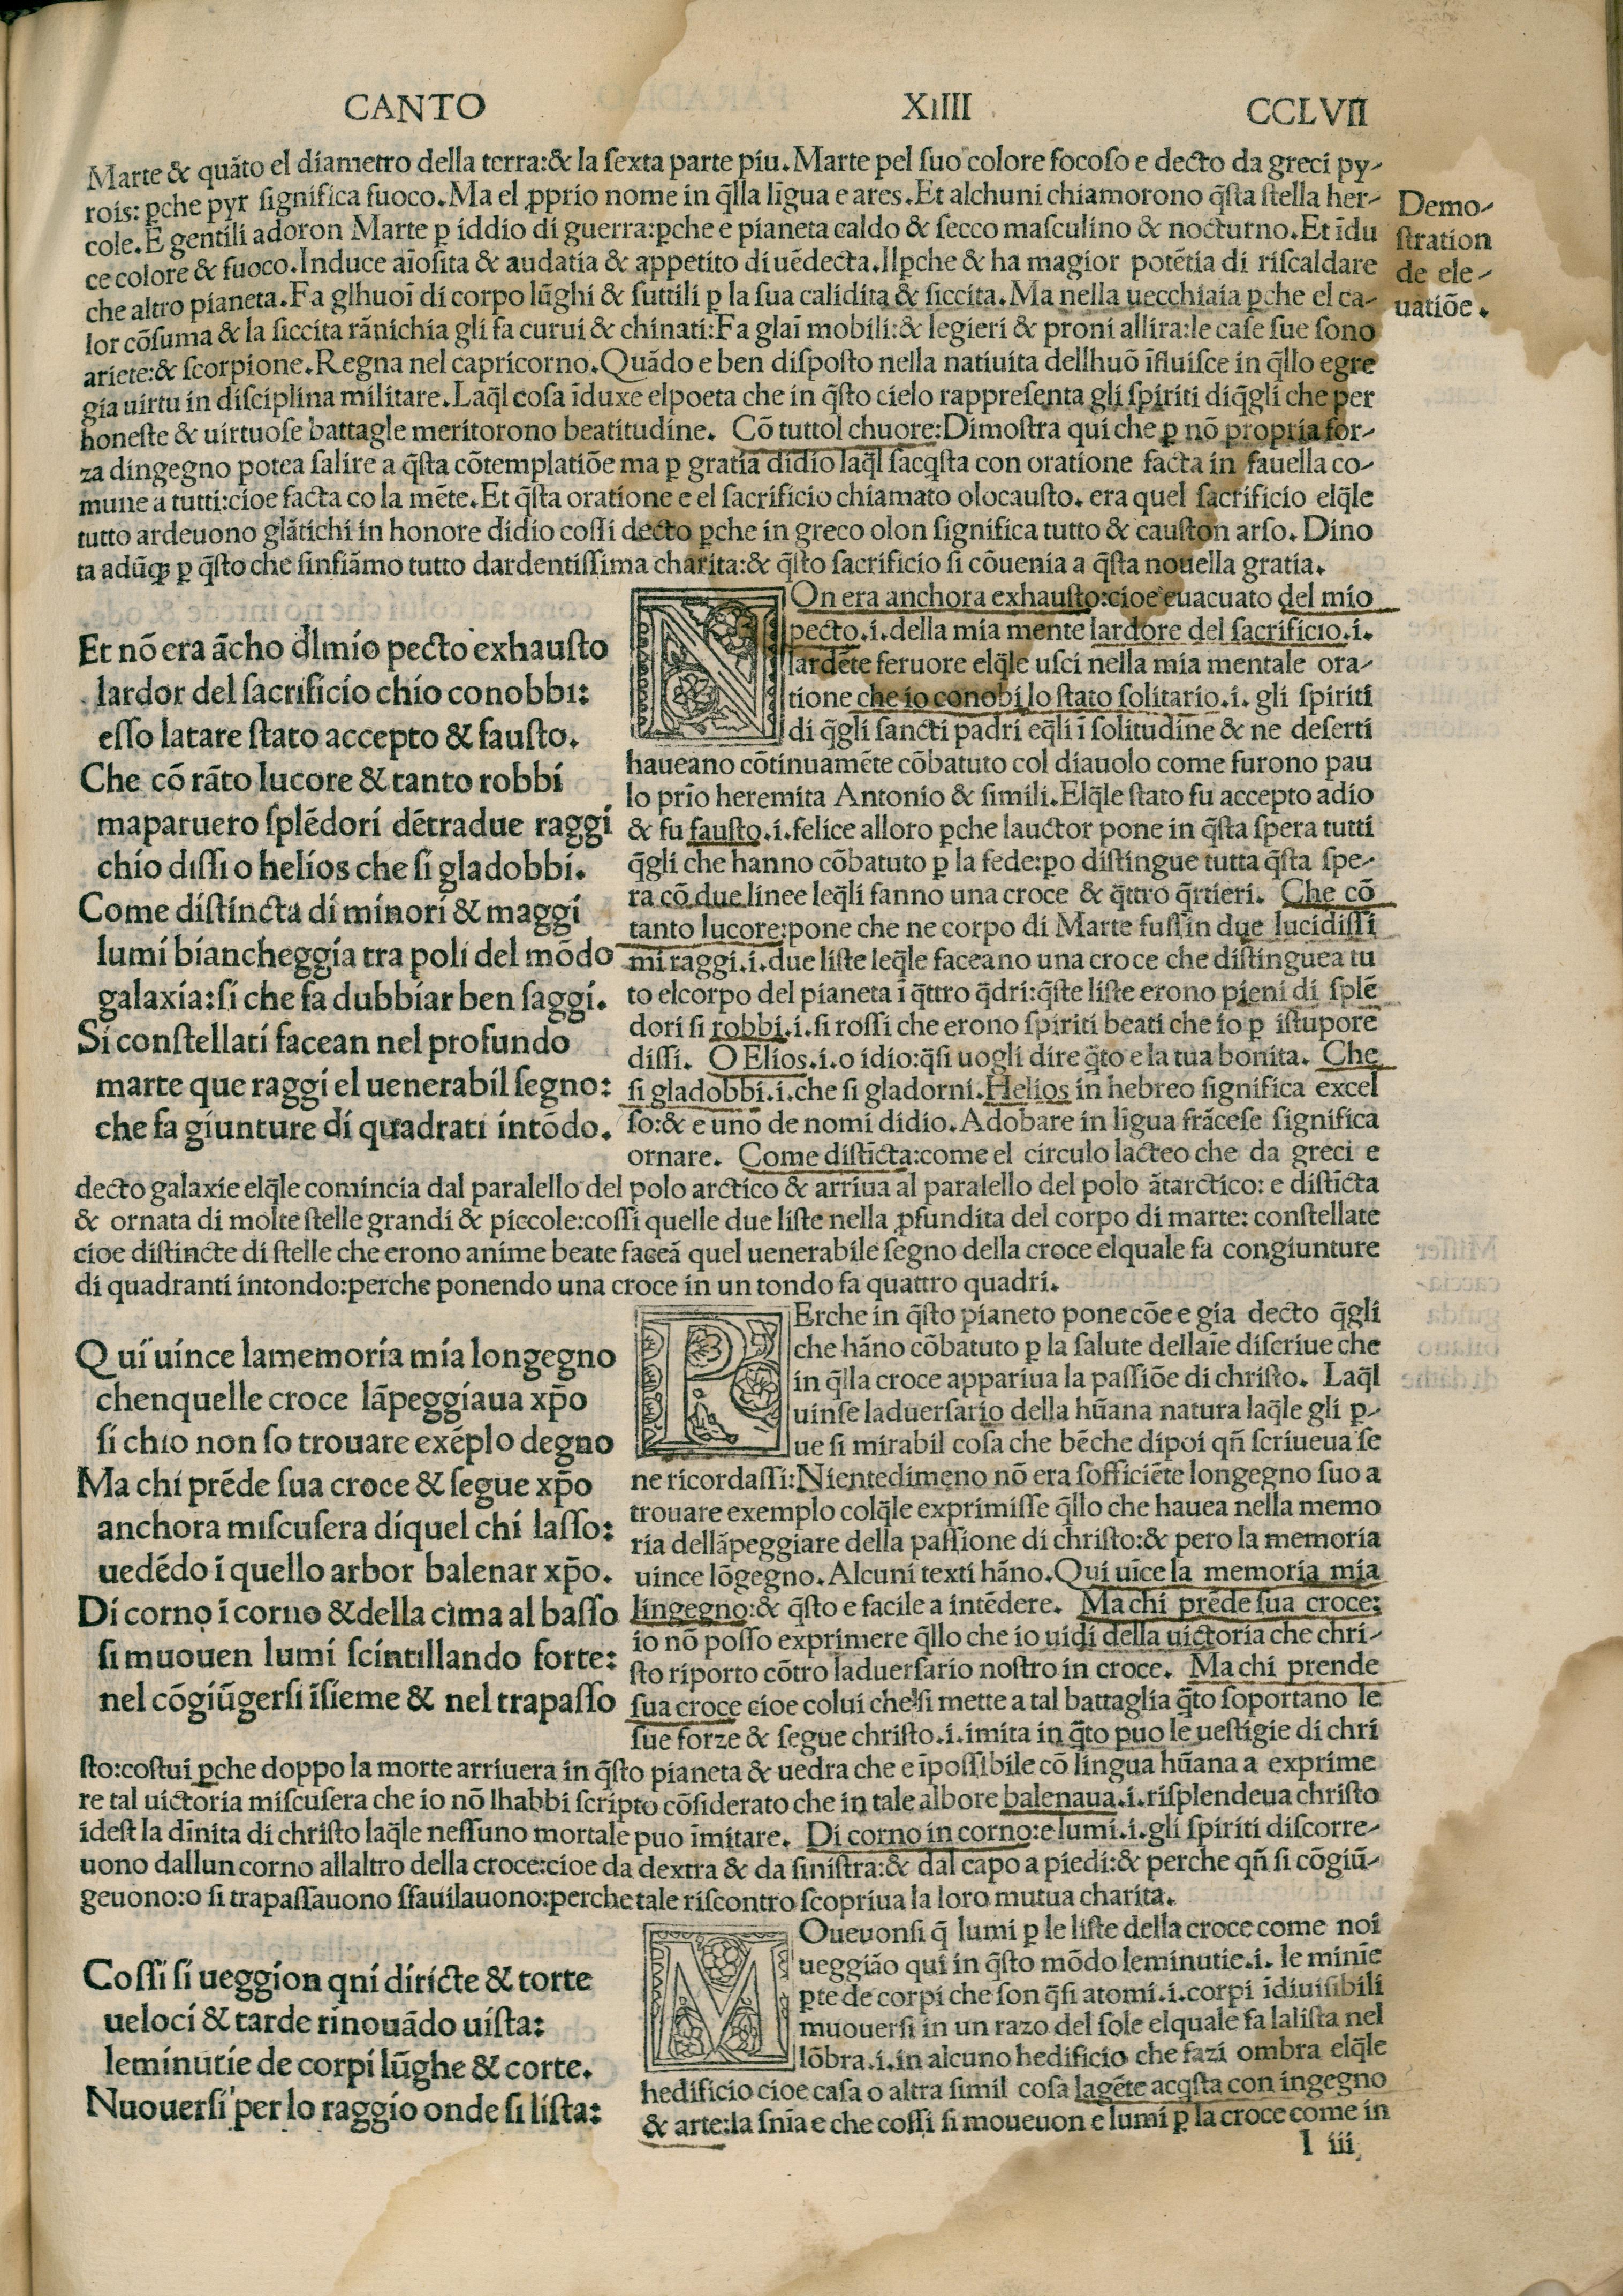 CANTO XIIII CCLVII
Marte & quāto el diametro della terra:& la sexta parte piu.Marte pel suo colore focoso e decto da greci py-
rois: ꝑche pyr significa fuoco.Ma el ꝓprio nome in q̄lla līgua e ares.Et alchuni chiamorono q̄sta stella her-
cole.E gentili adoron Marte ꝑ iddio di guerra:ꝑche e pianeta caldo & secco masculino & nocturno.Et īdu
ce colore & fuoco.Induce aīosita & audatia & appetito di uēdecta.Ilꝑche & ha magior potētia di riscaldare
che altro pianeta.Fa glhuoī di corpo lūghi & suttili ꝑ la sua calidita & siccita.Ma nella uecchiaia ꝑche el ca-
lor cōsuma & la siccita rānichia gli fa curui & chinati:Fa glaī mobili:& legieri & proni allira:le case sue sono
ariete:& scorpione.Regna nel capricorno.Quādo e ben disposto nella natiuita dellhuō īfluisce in q̄llo egre
gia uirtu in disciplina militare.Laq̄l cosa īduxe elpoeta che in q̄sto cielo rappresenta gli spiriti diq̄gli che per
honeste & uirtuose battagle meritorono beatitudine. Cō tuttol chuore:Dimostra qui che ꝑ nō propria for-
za dingegno potea salire a q̄sta cōtemplatiōe ma ꝑ gratia didio laq̄l sacq̄sta con oratione facta in fauella co-
mune a tutti:cioe facta co la mēte.Et q̄sta oratione e el sacrificio chiamato olocausto. era quel sacrificio elq̄le
tutto ardeuono glātichi in honore didio cossi decto ꝑche in greco olon significa tutto & causton arso. Dino
ta adūqꝫ ꝑ q̄sto che sinfiāmo tutto dardentissima charita:& q̄sto sacrificio si cōuenia a q̄sta nouella gratia.
Demo-
stration
de ele-
uatiōe.
Et nō era ācho dlmio pecto exhausto
lardor del sacrificio chio conobbi:
esso latare stato accepto & fausto.
Che cō rāto lucore & tanto robbi
maparuero splēdori dētradue raggi
chio dissi o helios che si gladobbi.
Come distincta di minori & maggi
lumi biancheggia tra poli del mōdo
galaxia:si che fa dubbiar ben saggi.
Si constellati facean nel profundo
marte que raggi el uenerabil segno:
che fa giunture di quadrati intōdo.
NOn era anchora exhausto:cioe euacuato del mio
pecto.i.della mia mente lardore del sacrificio.i.
lardēte feruore elq̄le usci nella mia mentale ora-
tione che io conobi lo stato solitario.i. gli spiriti
di q̄gli sancti padri eq̄li ī solitudine & ne deserti
haueano cōtinuamēte cōbatuto col diauolo come furono pau
lo prīo heremita Antonio & simili.Elq̄le stato fu accepto adio
& fu fausto.i.felice alloro ꝑche lauctor pone in q̄sta spera tutti
q̄gli che hanno cōbatuto ꝑ la fede:ꝑo distingue tutta q̄sta spe-
ra cō due linee leq̄li fanno una croce & q̄ttro q̄rtieri. Che cō
tanto lucore:pone che ne corpo di Marte fussin due lucidissi
mi raggi.i.due liste leq̄le faceano una croce che distinguea tu
to elcorpo del pianeta ī q̄ttro q̄dri:q̄ste liste erono pieni di splē
dori si robbi.i.si rossi che erono spiriti beati che io ꝑ istupore
dissi. O Elios.i.o idio:q̄si uogli dire q̄to e la tua bonita. Che
si gladobbi.i.che si gladorni.Helios in hebreo significa excel
so:& e uno de nomi didio.Adobare in līgua frācese significa
ornare. Come distīcta:come el circulo lacteo che da greci e
decto galaxie elq̄le comincia dal paralello del polo arctico & arriua al paralello del polo ātarctico: e distīcta
& ornata di molte stelle grandi & piccole:cossi quelle due liste nella ꝓfundita del corpo di marte: constellate
cioe distincte di stelle che erono anime beate faceā quel uenerabile segno della croce elquale fa congiunture
di quadranti intondo:perche ponendo una croce in un tondo fa quattro quadri.
Qui uince lamemoria mia longegno
chenquelle croce lāpeggiaua xp̄o
si chio non so trouare exēplo degno
Ma chi prēde sua croce & segue xp̄o
anchora miscusera diquel chi lasso:
uedēdo ī quello arbor balenar xp̄o.
Di corno ī corno &della cima al basso
si muouen lumi scintillando forte:
nel cōgiūgersi īsieme & nel trapasso
PErche in q̄sto pianeto pone cōe e gia decto q̄gli
che hāno cōbatuto ꝑ la salute dellaīe discriue che
in q̄lla croce appariua la passiōe di christo. Laq̄l
uinse laduersario della hūana natura laq̄le gli ꝑ-
ue si mirabil cosa che bēche dipoi qn̄ scriueua se
ne ricordassi:Nientedimeno nō era sofficiēte longegno suo a
trouare exemplo colq̄le exprimisse q̄llo che hauea nella memo
ria dellāpeggiare della passione di christo:& pero la memoria
uince lōgegno.Alcuni texti hāno.Qui uīce la memoria mia
lingegno:& q̄sto e facile a intēdere. Ma chi prēde sua croce:
io nō posso exprimere q̄llo che io uidi della uictoria che chri-
sto riporto cōtro laduersario nostro in croce. Ma chi prende
sua croce cioe colui che si mette a tal battaglia q̄to soportano le
sue forze & segue christo.i.imita in q̄to puo le uestigie di chri
sto:costui ꝑche doppo la morte arriuera in q̄sto pianeta & uedra che e īpossibile cō lingua hūana a exprime
re tal uictoria miscusera che io nō lhabbi scripto cōsiderato che in tale albore balenaua.i.risplendeua christo
idest la dīnita di christo laq̄le nessuno mortale puo īmitare. Di corno in corno:e lumi.i.gli spiriti discorre-
uono dallun corno allaltro della croce:cioe da dextra & da sinistra:& dal capo a piedi:& perche qn̄ si cōgiū-
geuono:o si trapassauono sfauilauono:perche tale riscontro scopriua la loro mutua charita.
Cossi si ueggion qni diricte & torte
ueloci & tarde rinouādo uista:
leminutie de corpi lūghe & corte.
Nuouersi per lo raggio onde si lista:
MOueuonsi q̄ lumi ꝑ le liste della croce come noi
ueggiāo qui in q̄sto mōdo leminutie.i. le minīe
ꝑte de corpi che son q̄si atomi.i.corpi īdiuisibili
muouersi in un razo del sole elquale fa lalista nel
lōbra.i.in alcuno hedificio che fazi ombra elq̄le
hedificio cioe casa o altra simil cosa lagēte acq̄sta con ingegno
& arte:la snīa e che cossi si moueuon e lumi ꝑ la croce come in
I iii